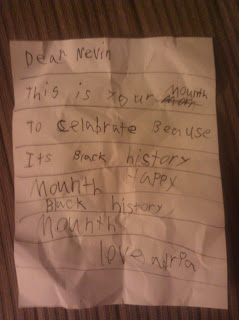 Dear Nevin
This is your mounth
To celabrate Beause
Its Black history
Mounth Happy
Black history
Mounth
love adria